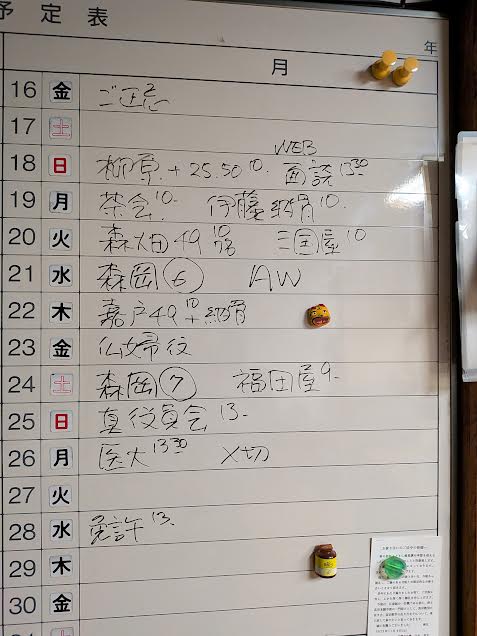 予定表
年
月
16 金 ご正忌
17 土
WEB
18 日 柳原 + 25.50 10. 面談 13 30
19 月 茶会 10- 伊藤納骨 10.
20 火 森畑 49 10 三国屋 10
21 水 森岡 ⑥ AW
22 木 嘉戸 49 10 + 納骨
23 金 仏婦役
24 土 森岡 ⑦ 福田屋 9-
25 日 真役員会 13-
26 月 医大 13 30 〆切
27 火
28 水 免許 13.
29 木
30 金
31 土